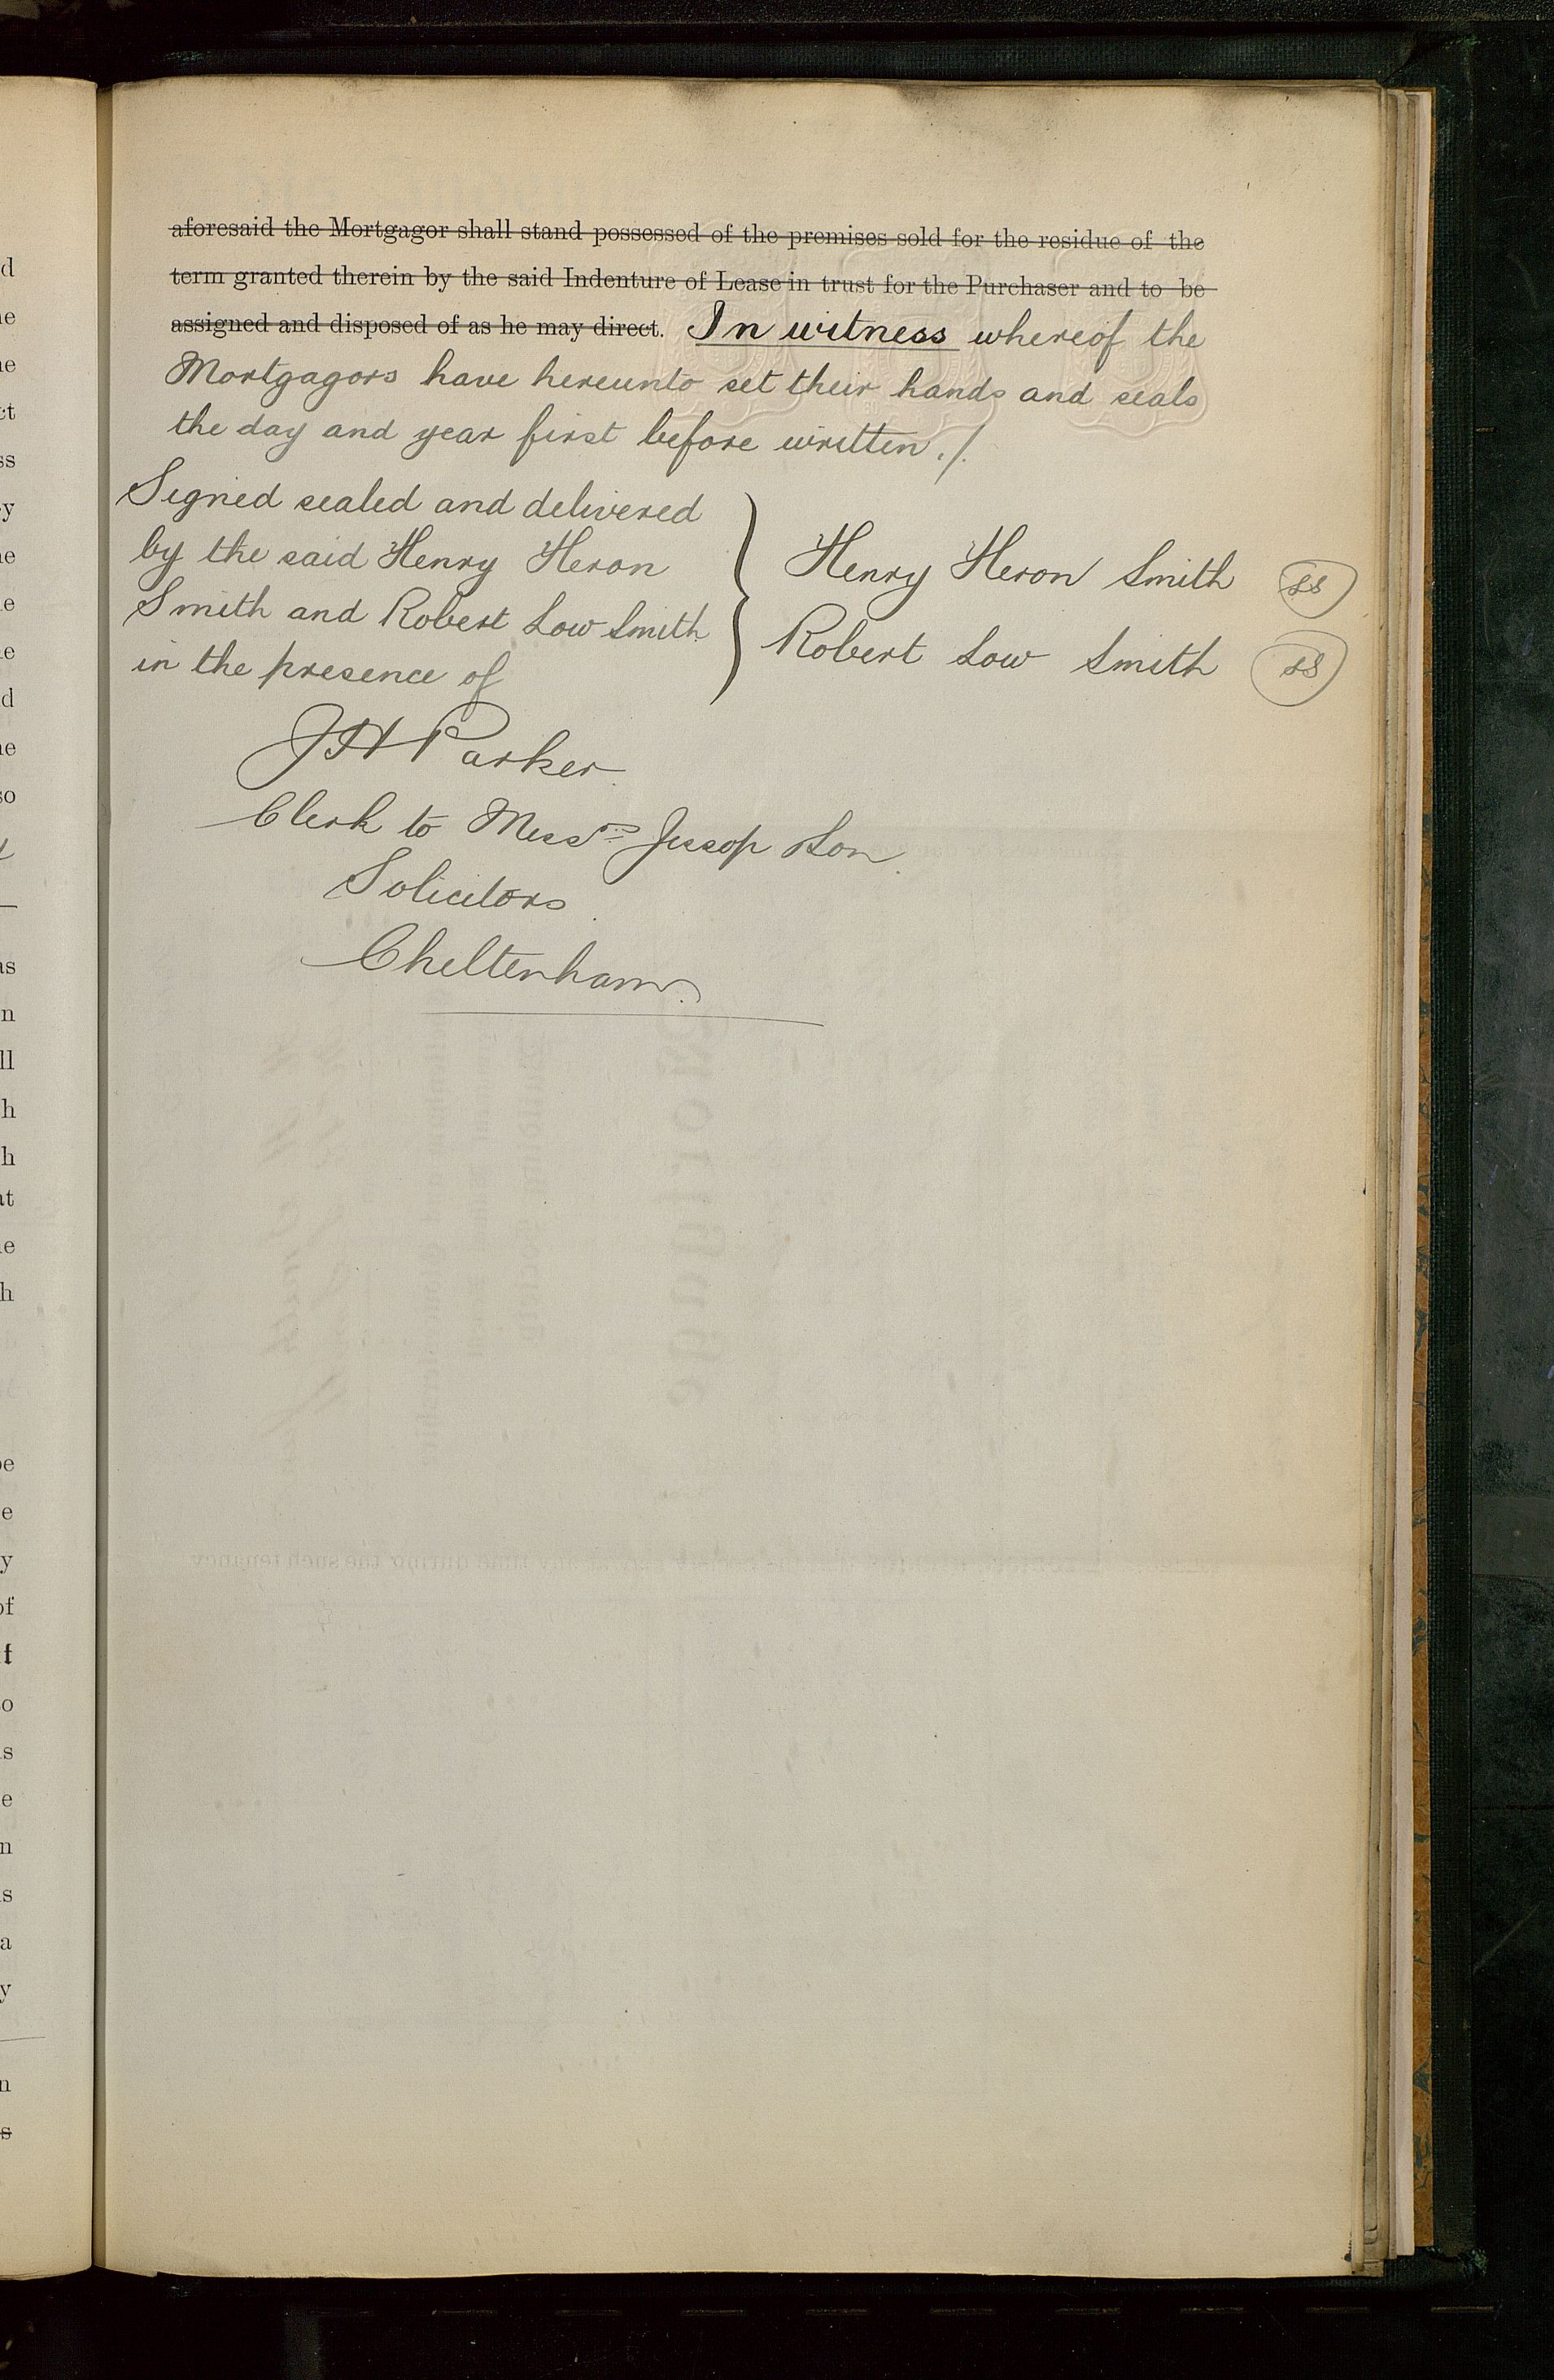 aforesaid the Mortgagor shall stand possessed of the premises sold for the residue of the
term granted therein by the said Indenture of Lease in trust for the Purchaser and to be
assigned and disposed of as he may direct. In witness whereof the
Mortgagors have hereunto set their hands and seals
the day and year first before written./.
Signed sealed and delivered
by the said Henry Heron
Smith and Robert Low Smith
in the presence of
Henry Heron Smith LS
Robert Low Smith LS
J H Parker
Clerk to Messrs Jessop & Son
Solicitors
Cheltenham.